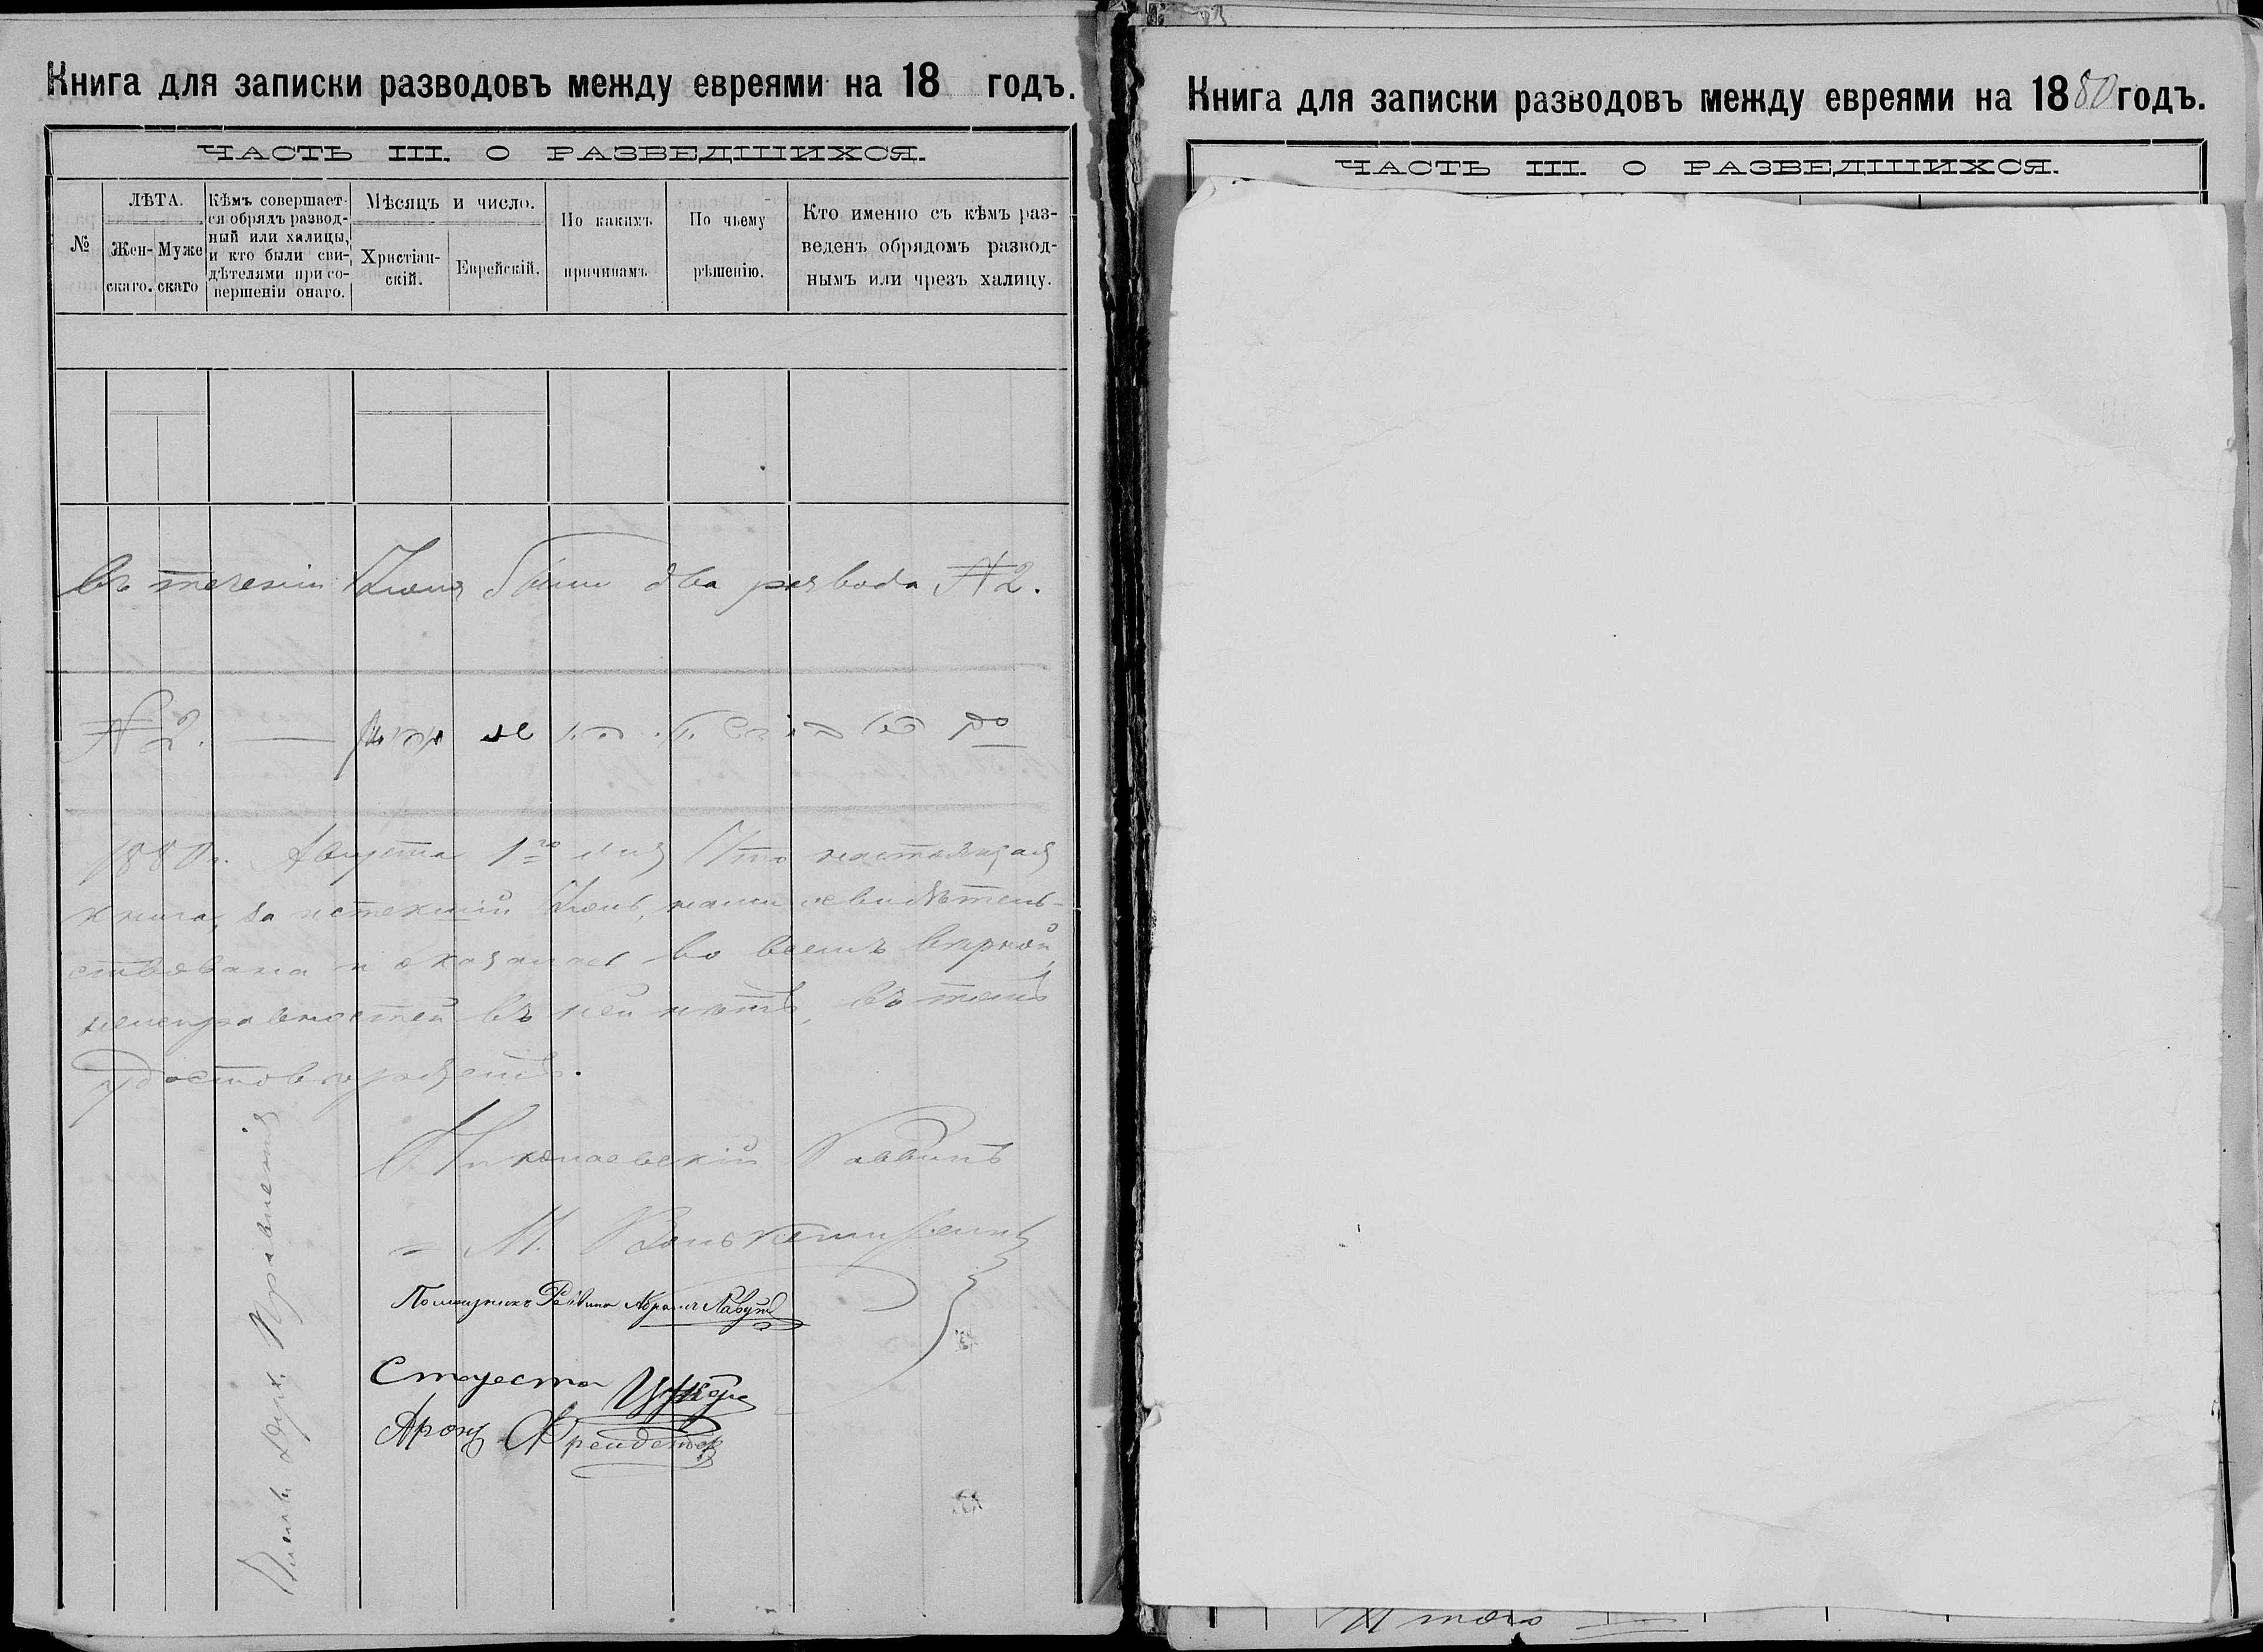 Книга для записки разводовъ между евреями на 18 годъ.
ЧАСТЬ III. О РАЗВЕДШИХСЯ.
№
ЛѢТА.
Жен-
скаго.
Муже
скаго
Кѣмъ совершает-
ся обрядъ развод-
ный или халицы,
и кто были сви-
дѣтелями при со-
вершеніи онаго.
Мѣсяцъ и число.
Христіан-
скій.
Еврейскій.
По какимъ
причинамъ
По чьему
рѣшенію.
Кто именно съ кѣмъ раз-
веденъ обрядомъ развод-
нымъ или чрезъ халицу.
Въ теченіи Іюля были два развода № 2.
№ 2.
1880 г. Августа 1го дня Что настоящая
книга, за истекшій Іюль, нами освидѣтель-
ствована и оказалась во всемъ вѣрной,
неисправностей въ ней нѣтъ, въ томъ
удостовѣряемъ.
Николаевскій Раввинъ
М.
Помощникъ Раввина Абрамъ
Староста
Аронъ
Правленія
Книга для записки разводовъ между евреями на 1880 годъ.
ЧАСТЬ III. О РАЗВЕДШИХСЯ.
Итого